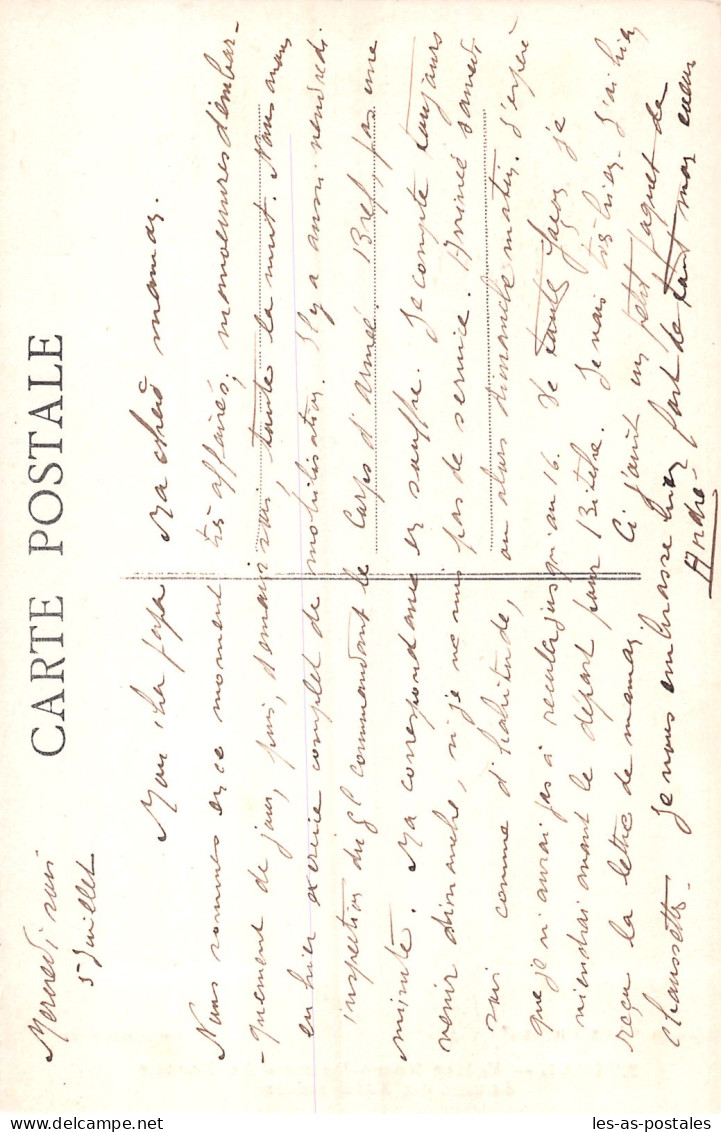 CARTE POSTALE
Mercredi soir
5 Juillet
Mon cher papa Ma chère maman.
Nous sommes en ce moment très affairés, manoeuvres d'embar-
-quement de jour, puis, demain soir toute la nuit. Nous avons
eu hier exercice complet de mobilisation. Il y a aussi vendredi
inspection du Gl commandant le Corps d'Armée. Bref, pas une
minute. Ma correspondance en souffre. Je compte toujours
venir dimanche, si je ne suis pas de service. Arrivée samedi
soir comme d'habitude, ou alors dimanche matin. J'espère
que je n'aurai pas à reculer jusqu'au 16. De toute façon je
viendrai avant le départ pour Bitche. Je vais très bien. J'ai bien
reçu la lettre de maman Ci joint un petit paquet de
chaussettes. Je vous embrasse bien fort de tout mon coeur
André
les-as-postales
Delcampe.net